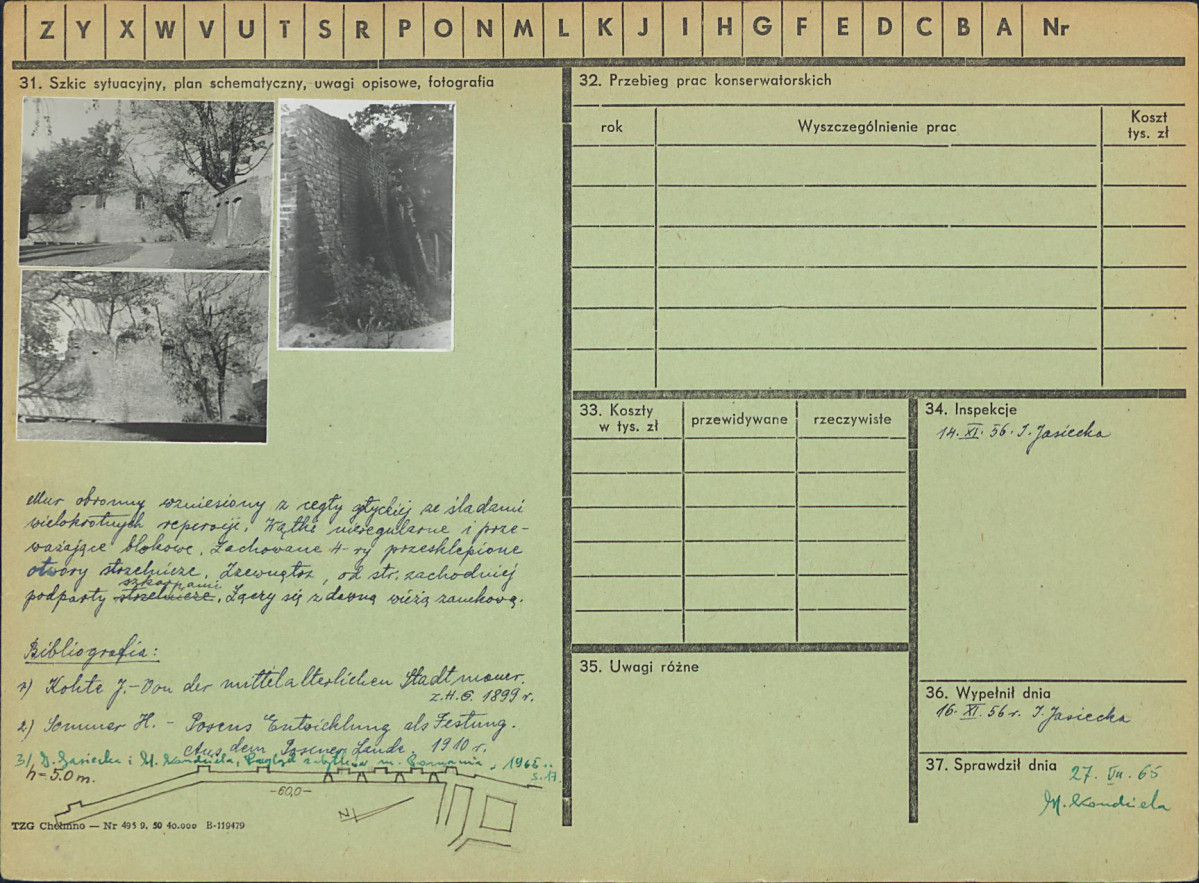 Z Y X W V U T S R P O N M L K J I H G F E D C B A Nr
31. Szkic sytuacyjny, plan schematyczny, uwagi opisowe, fotografia
Mur obronny wzniesiony z cegły gotyckiej ze śladami
wielokrotnych reperacji. Wątki nieregularne i prze-
ważające blokowe. Zachowane 4-ry przesklepione
otwory strzelnicze. Zzewnątrz, od str. zachodniej
szkarpami
podparty strzelnicze. Łączy się z dawną wieżą zamkową.
Bibliografia:
1) Kohte J. - Von der mittelalterlichen Stadtmauer.
Z.H.G. 1899 r.
2) Sommer H. - Posens Entwicklung als Festung.
Aus dem Posener Lande. 1910 r.
3/ I. Jasiecka i M. Kondziela, Przegląd zabytków m. Poznania, 1965..
s. 17.
h - 5.0 m.
-60,0-
N
TZG Chełmno — Nr 495 9. 50 40.000 B-119479
32. Przebieg prac konserwatorskich
rok
Wyszczególnienie prac
Koszt
tys. zł
33. Koszty
w tys. zł
przewidywane
rzeczywiste
34. Inspekcje
14. XI. 56. I. Jasiecka
35. Uwagi różne
36. Wypełnił dnia
16. XI. 56 r. I. Jasiecka
37. Sprawdził dnia
27. VII. 65
M. Kondziela